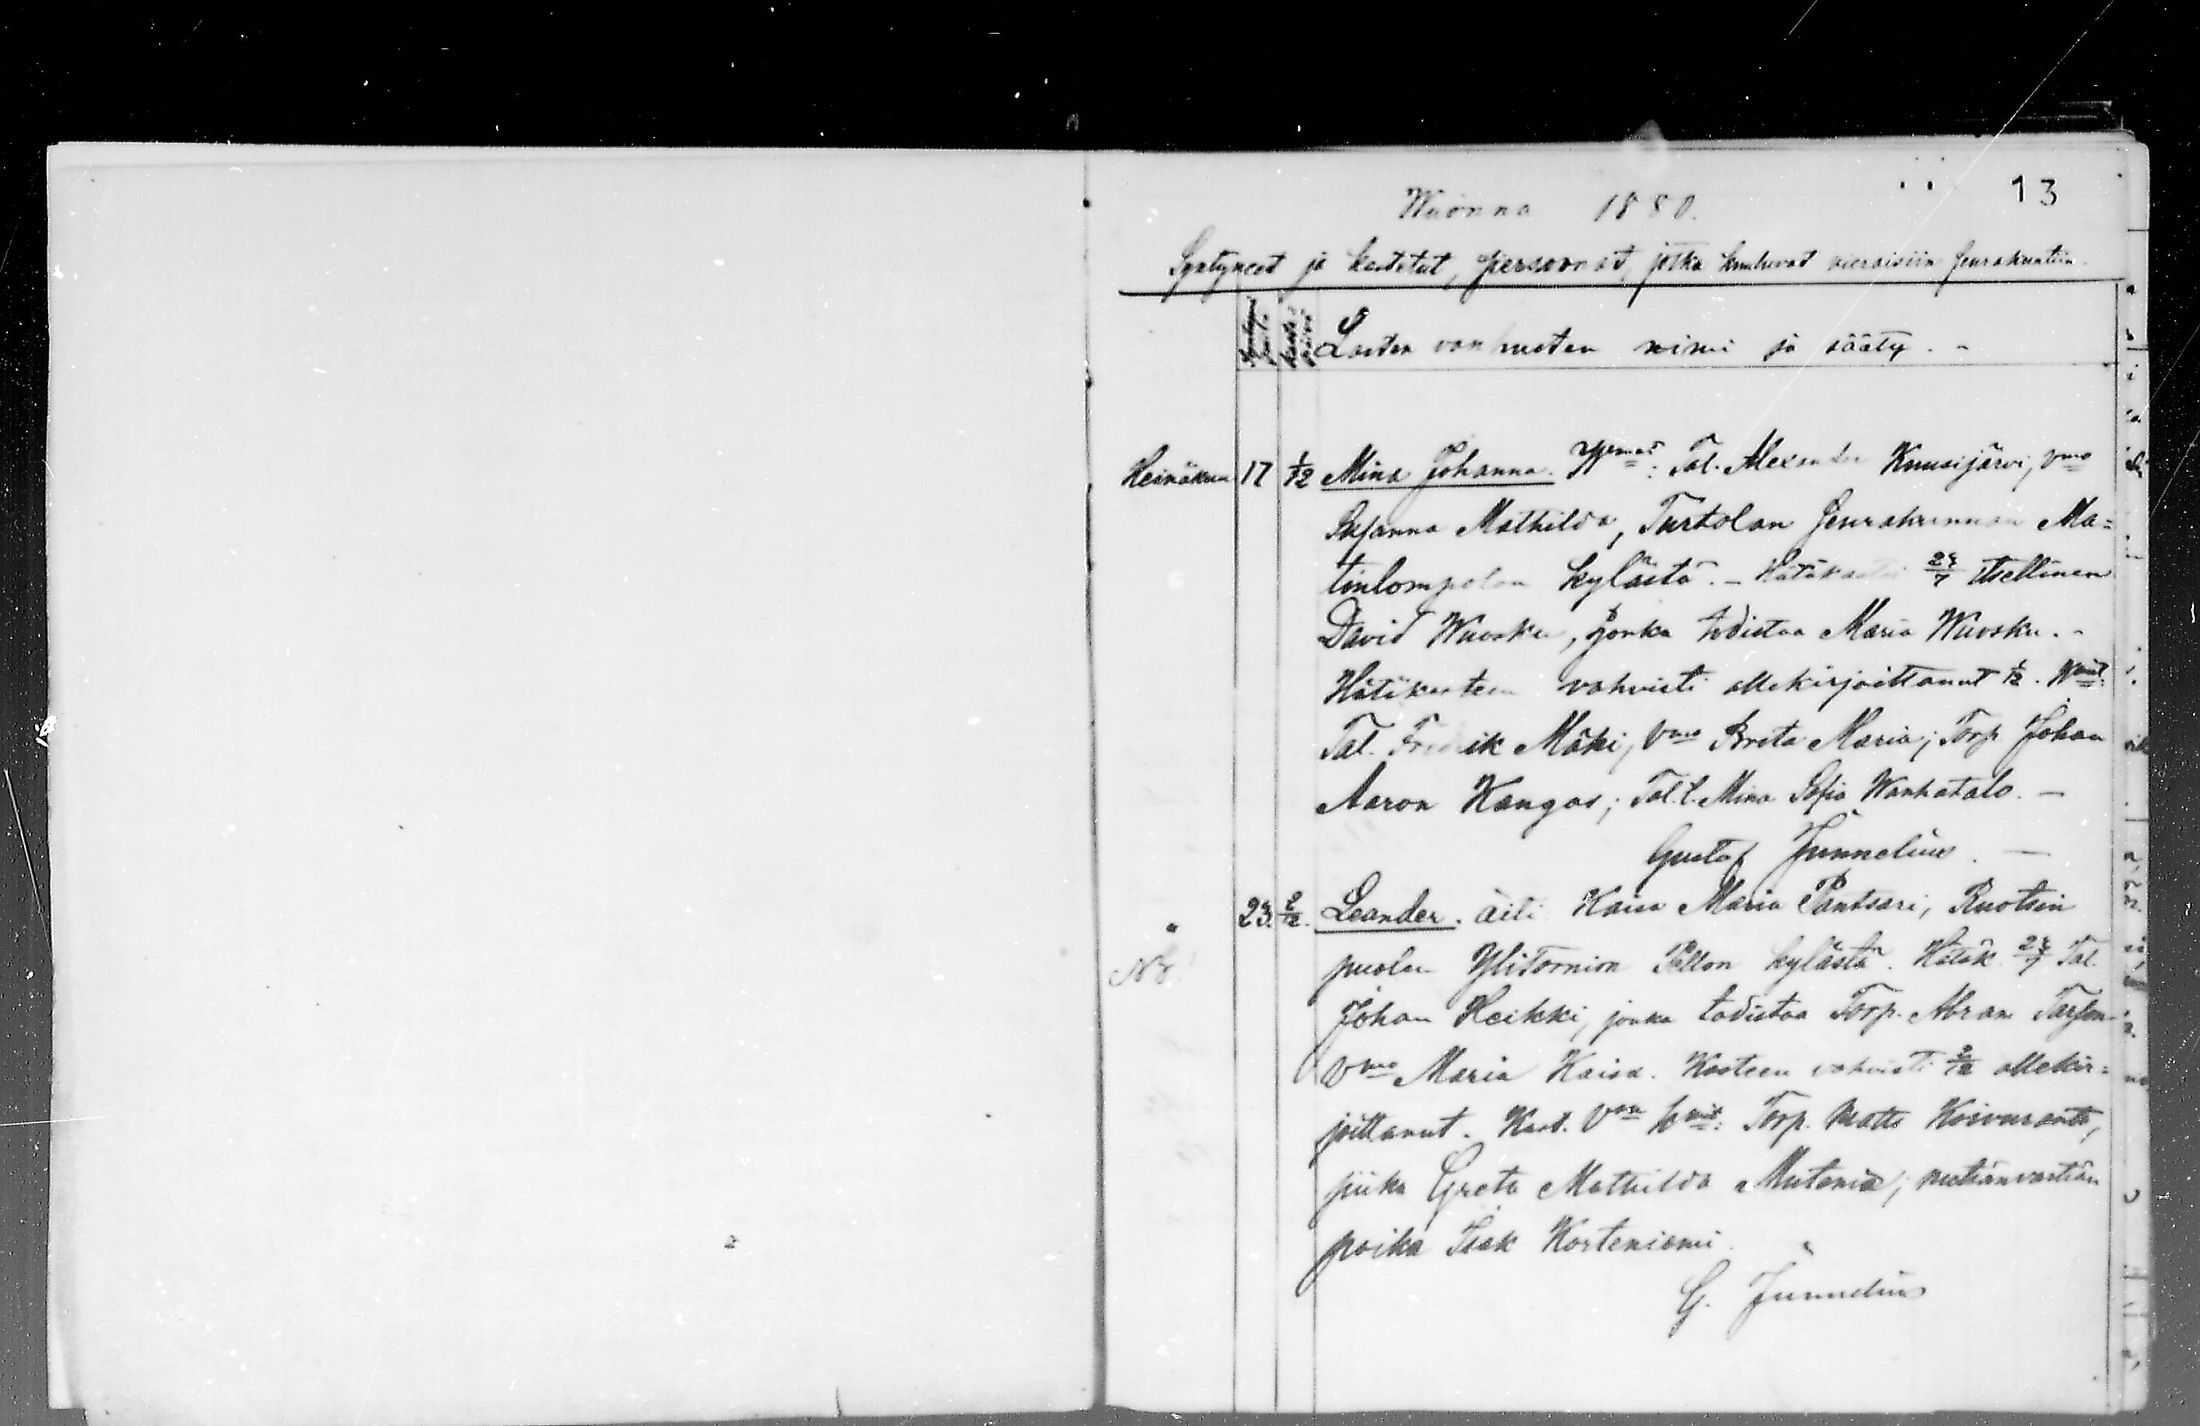 13
Wuonna 1880.
Syntyneet ja kastetut, personat, jotka kuuluvat vieraisiin seurakuntiin.
Lasten vanhmeten nimi ja sääty. -
Heinäkuu 17 1/12 Mina Johanna. : Tal. Alexander Kuusijärvi, vmo
Susanna Mathilda, Turtolan seurakunnan Ma=
tinlompolon kylästä. - Hätäkastoi 24/7 itsellinen
David Wuosku, jonka todistaa Maria Wuosku. -
Hätäkasteen vahvisti allekirjoittanut 1/12.
Tal. Fredrik Mäki, vmo Brita Maria; Torp Johan
Aaron Kangas; Tal. t. Mina Sofia Wanhatalo. -
Gustaf Junnelius. -
" 23. 2/12. Leander. äiti Kaisa Maria Pantsari, Ruotsin
puolen YliTornion Pellon kylästä. Hätäk. 24/7 Tal.
Johan Heikki, jonka todistaa Torp. Abram
vmo Maria Kaisa. Kasteen vahvisti 2/12 allekir=
joittanut. Kast. Torp. Matts Koivuranta,
piika Greta Mathilda Mutenia; metsänvartian
poika Isak Korteniemi.
G. Junnelius